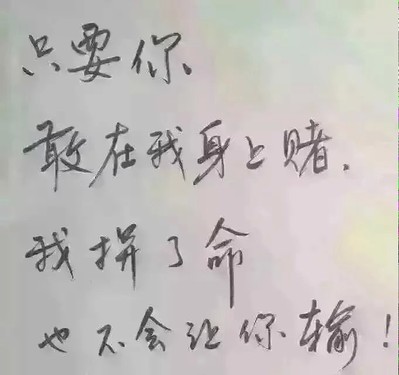 只要你、
敢在我身上赌、
我拼了命
也不会让你输！